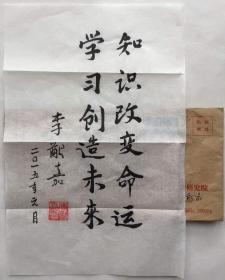 知识改变命运
学习创造未来
李献嘉
二〇一五年元月
研究院